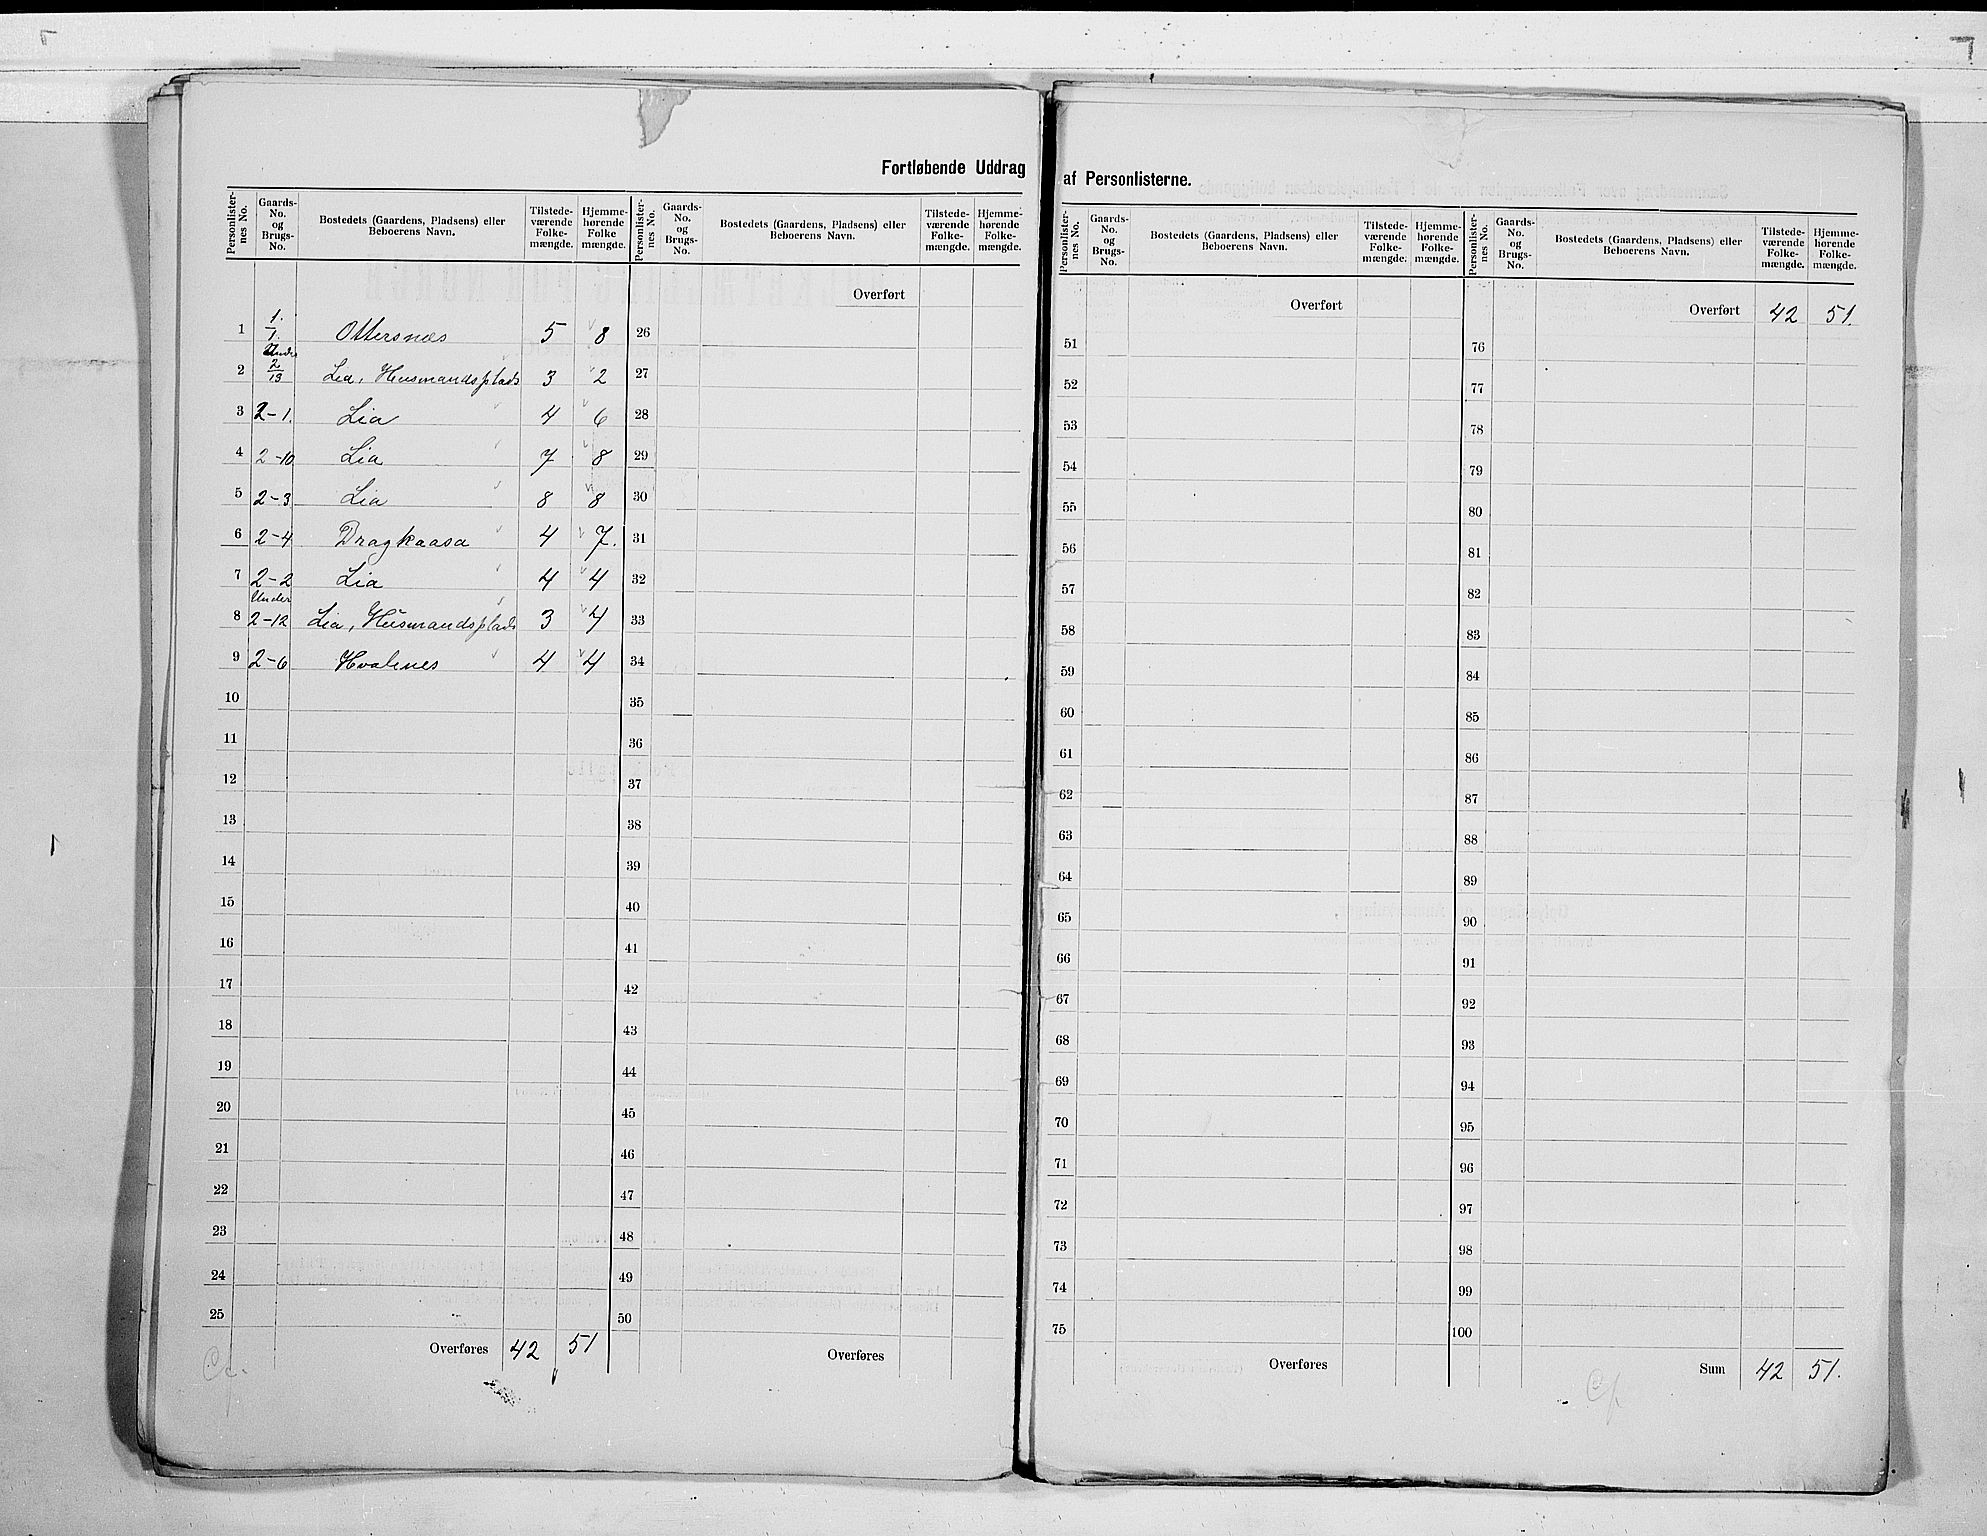 Fortløbende Uddrag af Personlisterne.
Personlister-nes No. | Gaards-No. og Brugs-No. | Bostedets (Gaardens, Pladsens) eller Beboerens Navn. | Tilstede-værende Folke-mængde. | Hjemme-hørende Folke mængde.
1 | 1. / 1. | Ottersnæs | 5 | 8
2 | Under 2/13 | Lia, Husmandsplads | 3 | 2
3 | 2-1. | Lia | 4 | 6
4 | 2-10 | Lia | 7 | 8
5 | 2-3 | Lia | 8 | 8
6 | 2-4 | Dragkaasa | 4 | 7.
7 | 2-2 | Lia | 4 | 4
8 | Under 2-12 | Lia, Husmandsplads | 3 | 4
9 | 2-6 | Hvalenes | 4 | 4
10
11
12
13
14
15
16
17
18
19
20
21
22
23
24
25
Overføres 42 51
Personlister-nes No. | Gaards-No. og Brugs-No. | Bostedets (Gaardens, Pladsens) eller Beboerens Navn. | Tilstede-værende Folke-mængde. | Hjemme-hørende Folke-mængde.
Overført
26
27
28
29
30
31
32
33
34
35
36
37
38
39
40
41
42
43
44
45
46
47
48
49
50
Overføres
Personlister-nes No. | Gaards-No. og Brugs-No. | Bostedets (Gaardens, Pladsens) eller Beboerens Navn. | Tilstede-værende Folke-mængde. | Hjemme-hørende Folke-mængde.
Overført
51
52
53
54
55
56
57
58
59
60
61
62
63
64
65
66
67
68
69
70
71
72
73
74
75
Overføres
Personlister-nes No. | Gaards-No. og Brugs-No. | Bostedets (Gaardens, Pladsens) eller Beboerens Navn. | Tilstede-værende Folke-mængde. | Hjemme-hørende Folke-mængde.
Overført 42 51.
76
77
78
79
80
81
82
83
84
85
86
87
88
89
90
91
92
93
94
95
96
97
98
99
100
Sum 42 51.